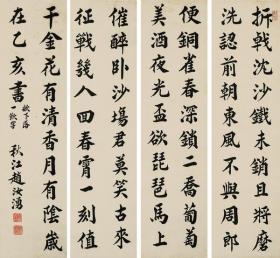 折戟沉沙鐵未銷且將磨
洗認前朝東風不與周郎
便銅雀春深鎖二喬葡萄
美酒夜光盃欲琵琶馬上
催醉臥沙場君莫笑古來
征戰幾人回春宵一刻值
千金花有清香月有陰歲
在乙亥書
欲下落
一飲字
秋江趙汝